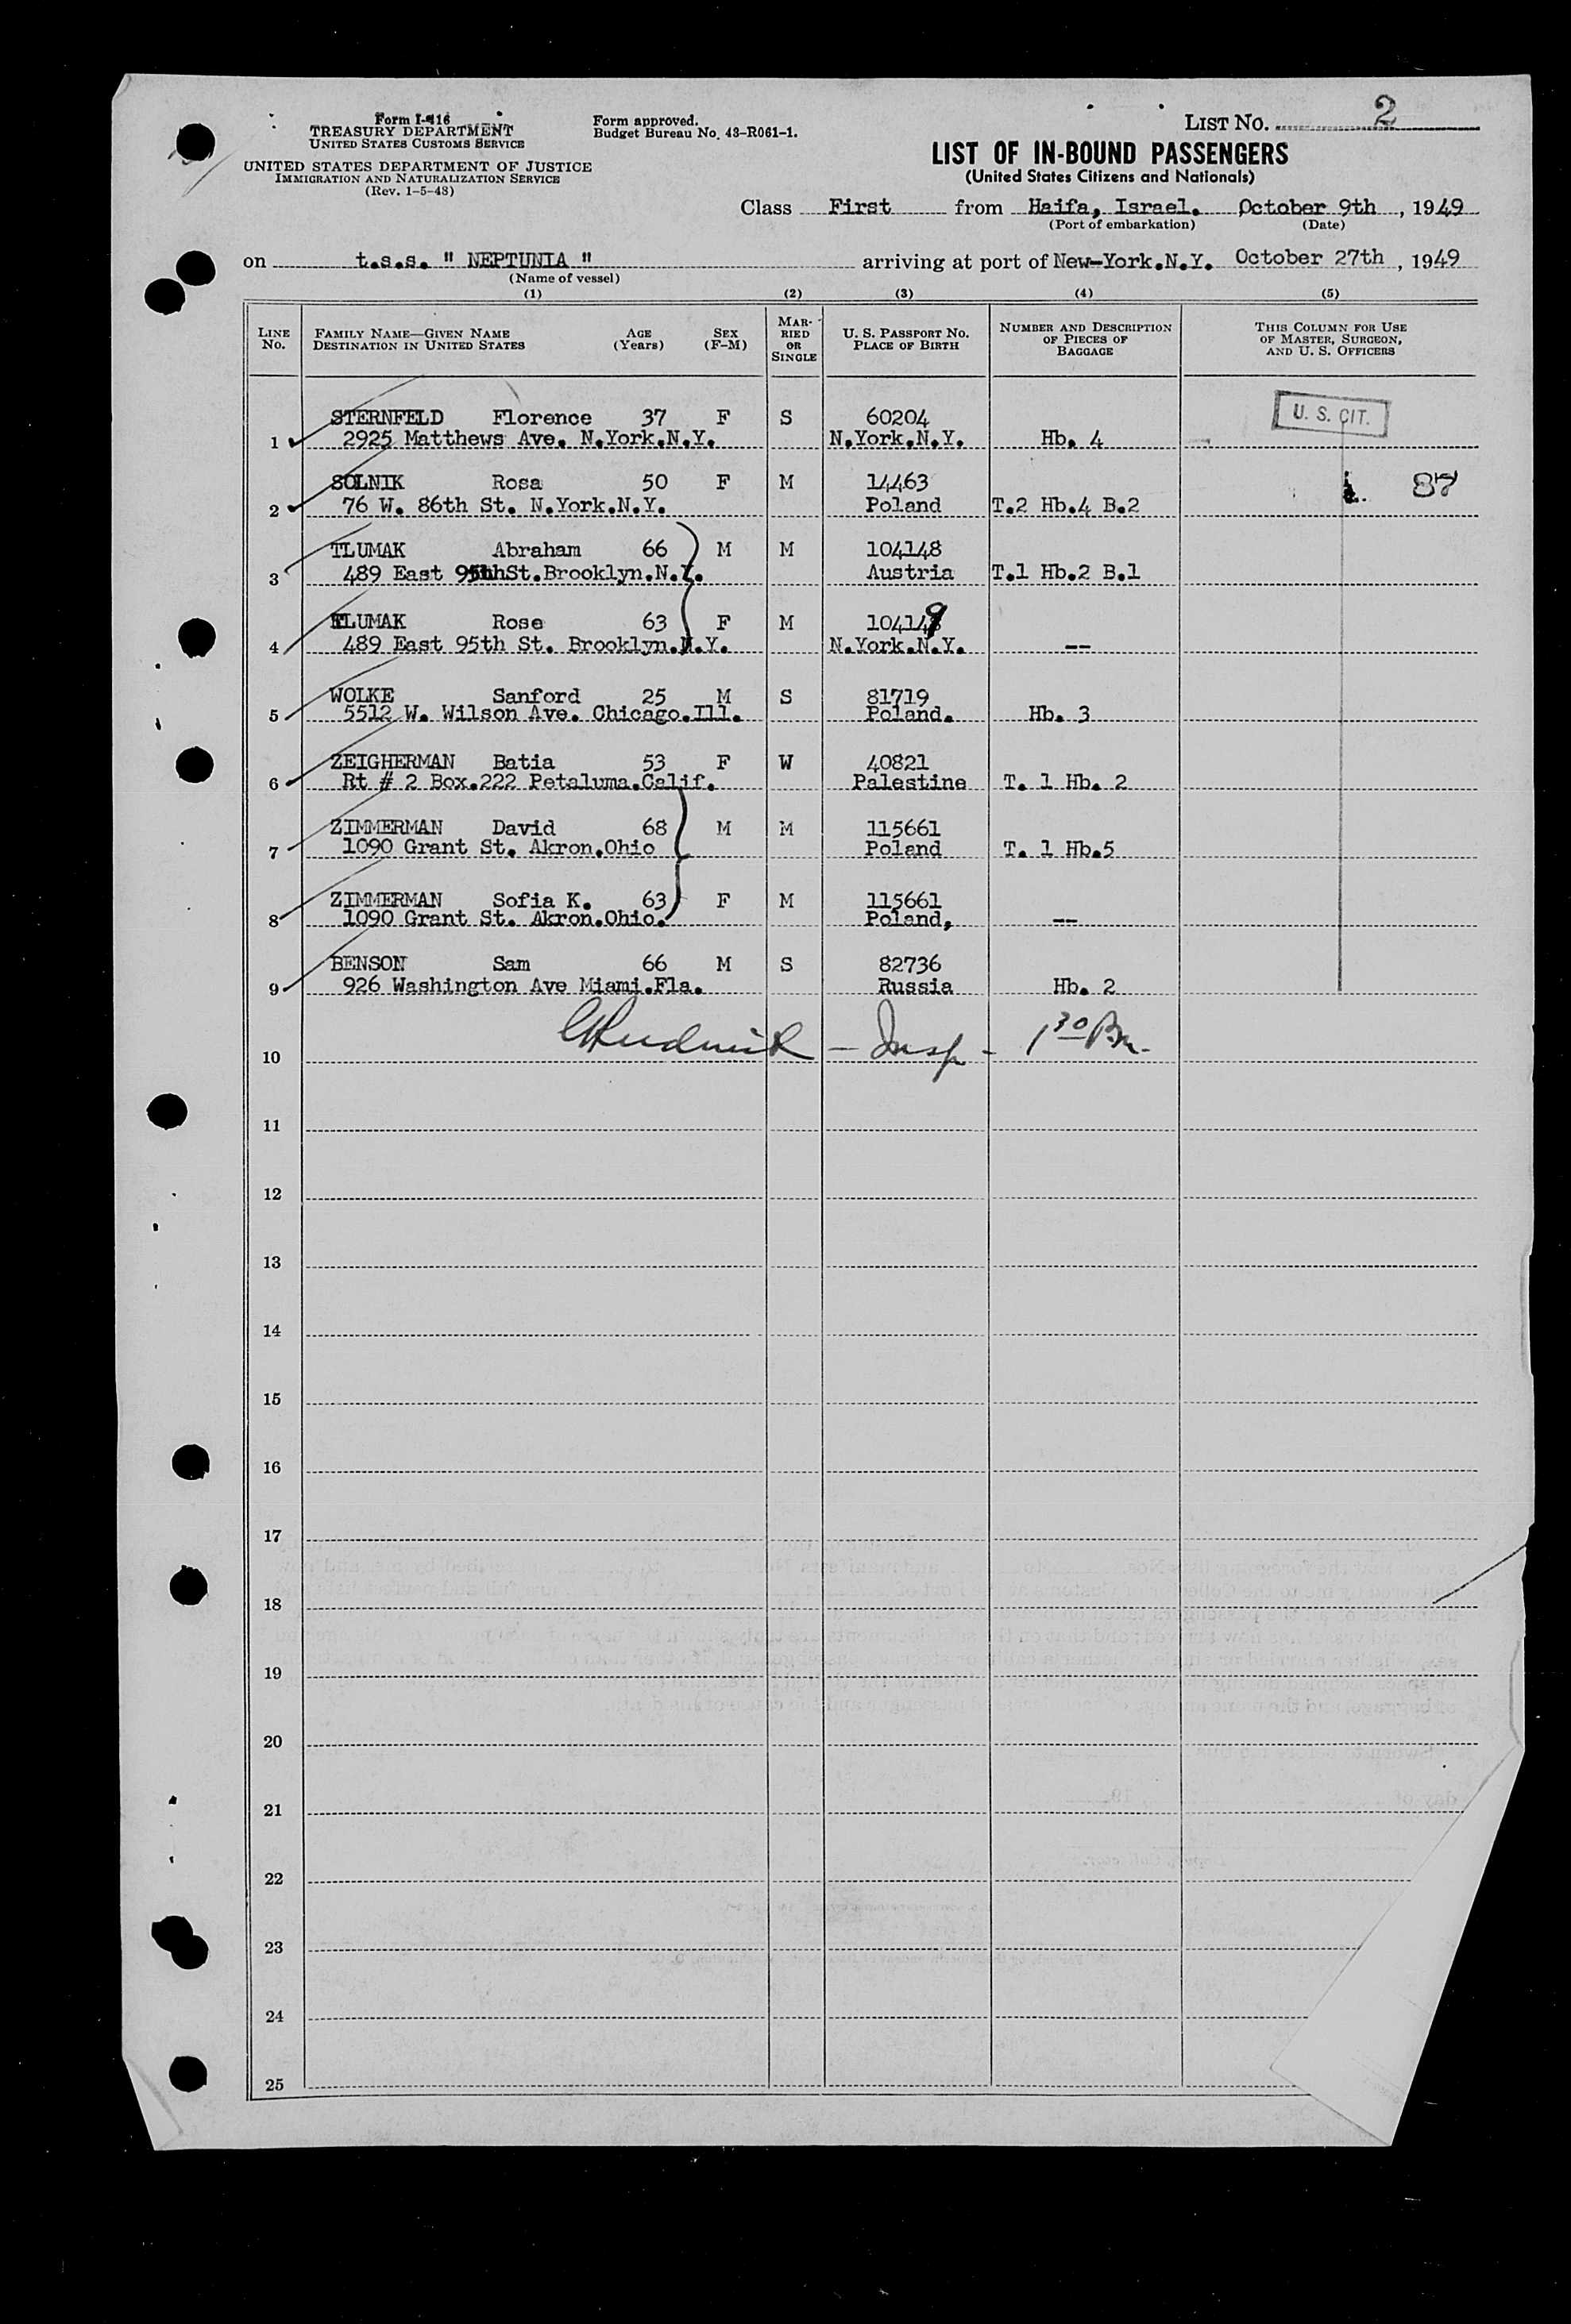 Form I-416
TREASURY DEPARTMENT
UNITED STATES CUSTOMS SERVICE
UNITED STATES DEPARTMENT OF JUSTICE
IMMIGRATION AND NATURALIZATION SERVICE
(Rev. 1-5-48)
Form approved.
Budget Bureau No. 43-R061-1.
LIST NO. 2
LIST OF IN-BOUND PASSENGERS
(United States Citizens and Nationals)
Class First from Haifa, Israel. October 9th, 1949
(Port of embarkation) (Date)
on t.s.s. " NEPTUNIA " arriving at port of New-York.N.Y. October 27th, 1949
(Name of vessel)
(1) (2) (3) (4) (5)
LINE NO.
FAMILY NAME—GIVEN NAME AGE SEX
DESTINATION IN UNITED STATES (Years) (F-M)
MARRIED OR SINGLE
U. S. PASSPORT NO.
PLACE OF BIRTH
NUMBER AND DESCRIPTION
OF PIECES OF
BAGGAGE
THIS COLUMN FOR USE
OF MASTER, SURGEON,
AND U. S. OFFICERS
STERNFELD Florence 37 F S 60204 U. S. CIT.
1 2925 Matthews Ave. N.York.N.Y. N.York.N.Y. Hb. 4
SOLNIK Rosa 50 F M 14463 87
2 76 W. 86th St. N.York.N.Y. Poland T.2 Hb.4 B.2
TLUMAK Abraham 66 M M 104148
3 489 East 95th St.Brooklyn.N.Y. Austria T.1 Hb.2 B.1
TLUMAK Rose 63 F M 104149
4 489 East 95th St. Brooklyn.N.Y. N.York.N.Y. --
WOLKE Sanford 25 M S 81719
5 5512 W. Wilson Ave. Chicago.Ill. Poland. Hb. 3
ZEIGHERMAN Batia 53 F W 40821
6 Rt # 2 Box.222 Petaluma.Calif. Palestine T. 1 Hb. 2
ZIMMERMAN David 68 M M 115661
7 1090 Grant St. Akron.Ohio Poland T. 1 Hb.5
ZIMMERMAN Sofia K. 63 F M 115661
8 1090 Grant St. Akron.Ohio. Poland, --
BENSON Sam 66 M S 82736
9 926 Washington Ave Miami.Fla. Russia Hb. 2
10 - Insp - 1 30 Pm.
11
12
13
14
15
16
17
18
19
20
21
22
23
24
25